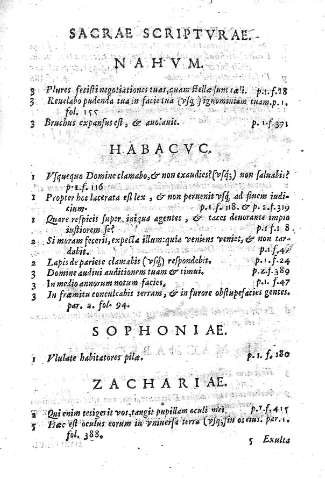 SACRAE SCRIPTVRAE.
NAHVM.
3 Plures fecisti negotiationes tuas, quam stellæ sunt cæli. p.1.f.28
3 Reuelabo pudenda tua in facie tua (vsq;) ignominiam tuam. p.1.
fol. 155
3 Bruchus expansus est, & auolauit. p.1.f.371
HABACVC.
1 Vsquequo Domine clamabo, & non exaudies? (vsq;) non saluabis?
p.2.f.116
1 Propter hoc lacerata est lex, & non peruenit vsq; ad finem iudi-
cium. p.1.f.118. & p.2.f.319
1 Quare respicis super iniqua agentes, & taces deuorante impio
iustiorem se? p.1.f.18
2 Si moram fecerit, expecta illum: quia veniens veniet, & non tar-
dabit. p.1.f.47
2 Lapis de pariete clamabit (vsq;) respondebit. p.1.f.24
3 Domine audiui auditionem tuam & timui. p.2.f.389
3 In medio annorum notum facies, p.1.f.47
3 In fræmitu conculcabis terram, & in furore obstupefacies gentes.
par. 2. fol. 94.
SOPHONIAE.
1 Vlulate habitatores pilæ. p.1.f.180
ZACHARIAE.
2 Qui enim tetigerit vos, tangit pupillam oculi mei. p.1.f.415
5 Hæc est oculus eorum in vniuersa terra (vsq;) in occius. par.1.
fol. 388.
5 Exulta